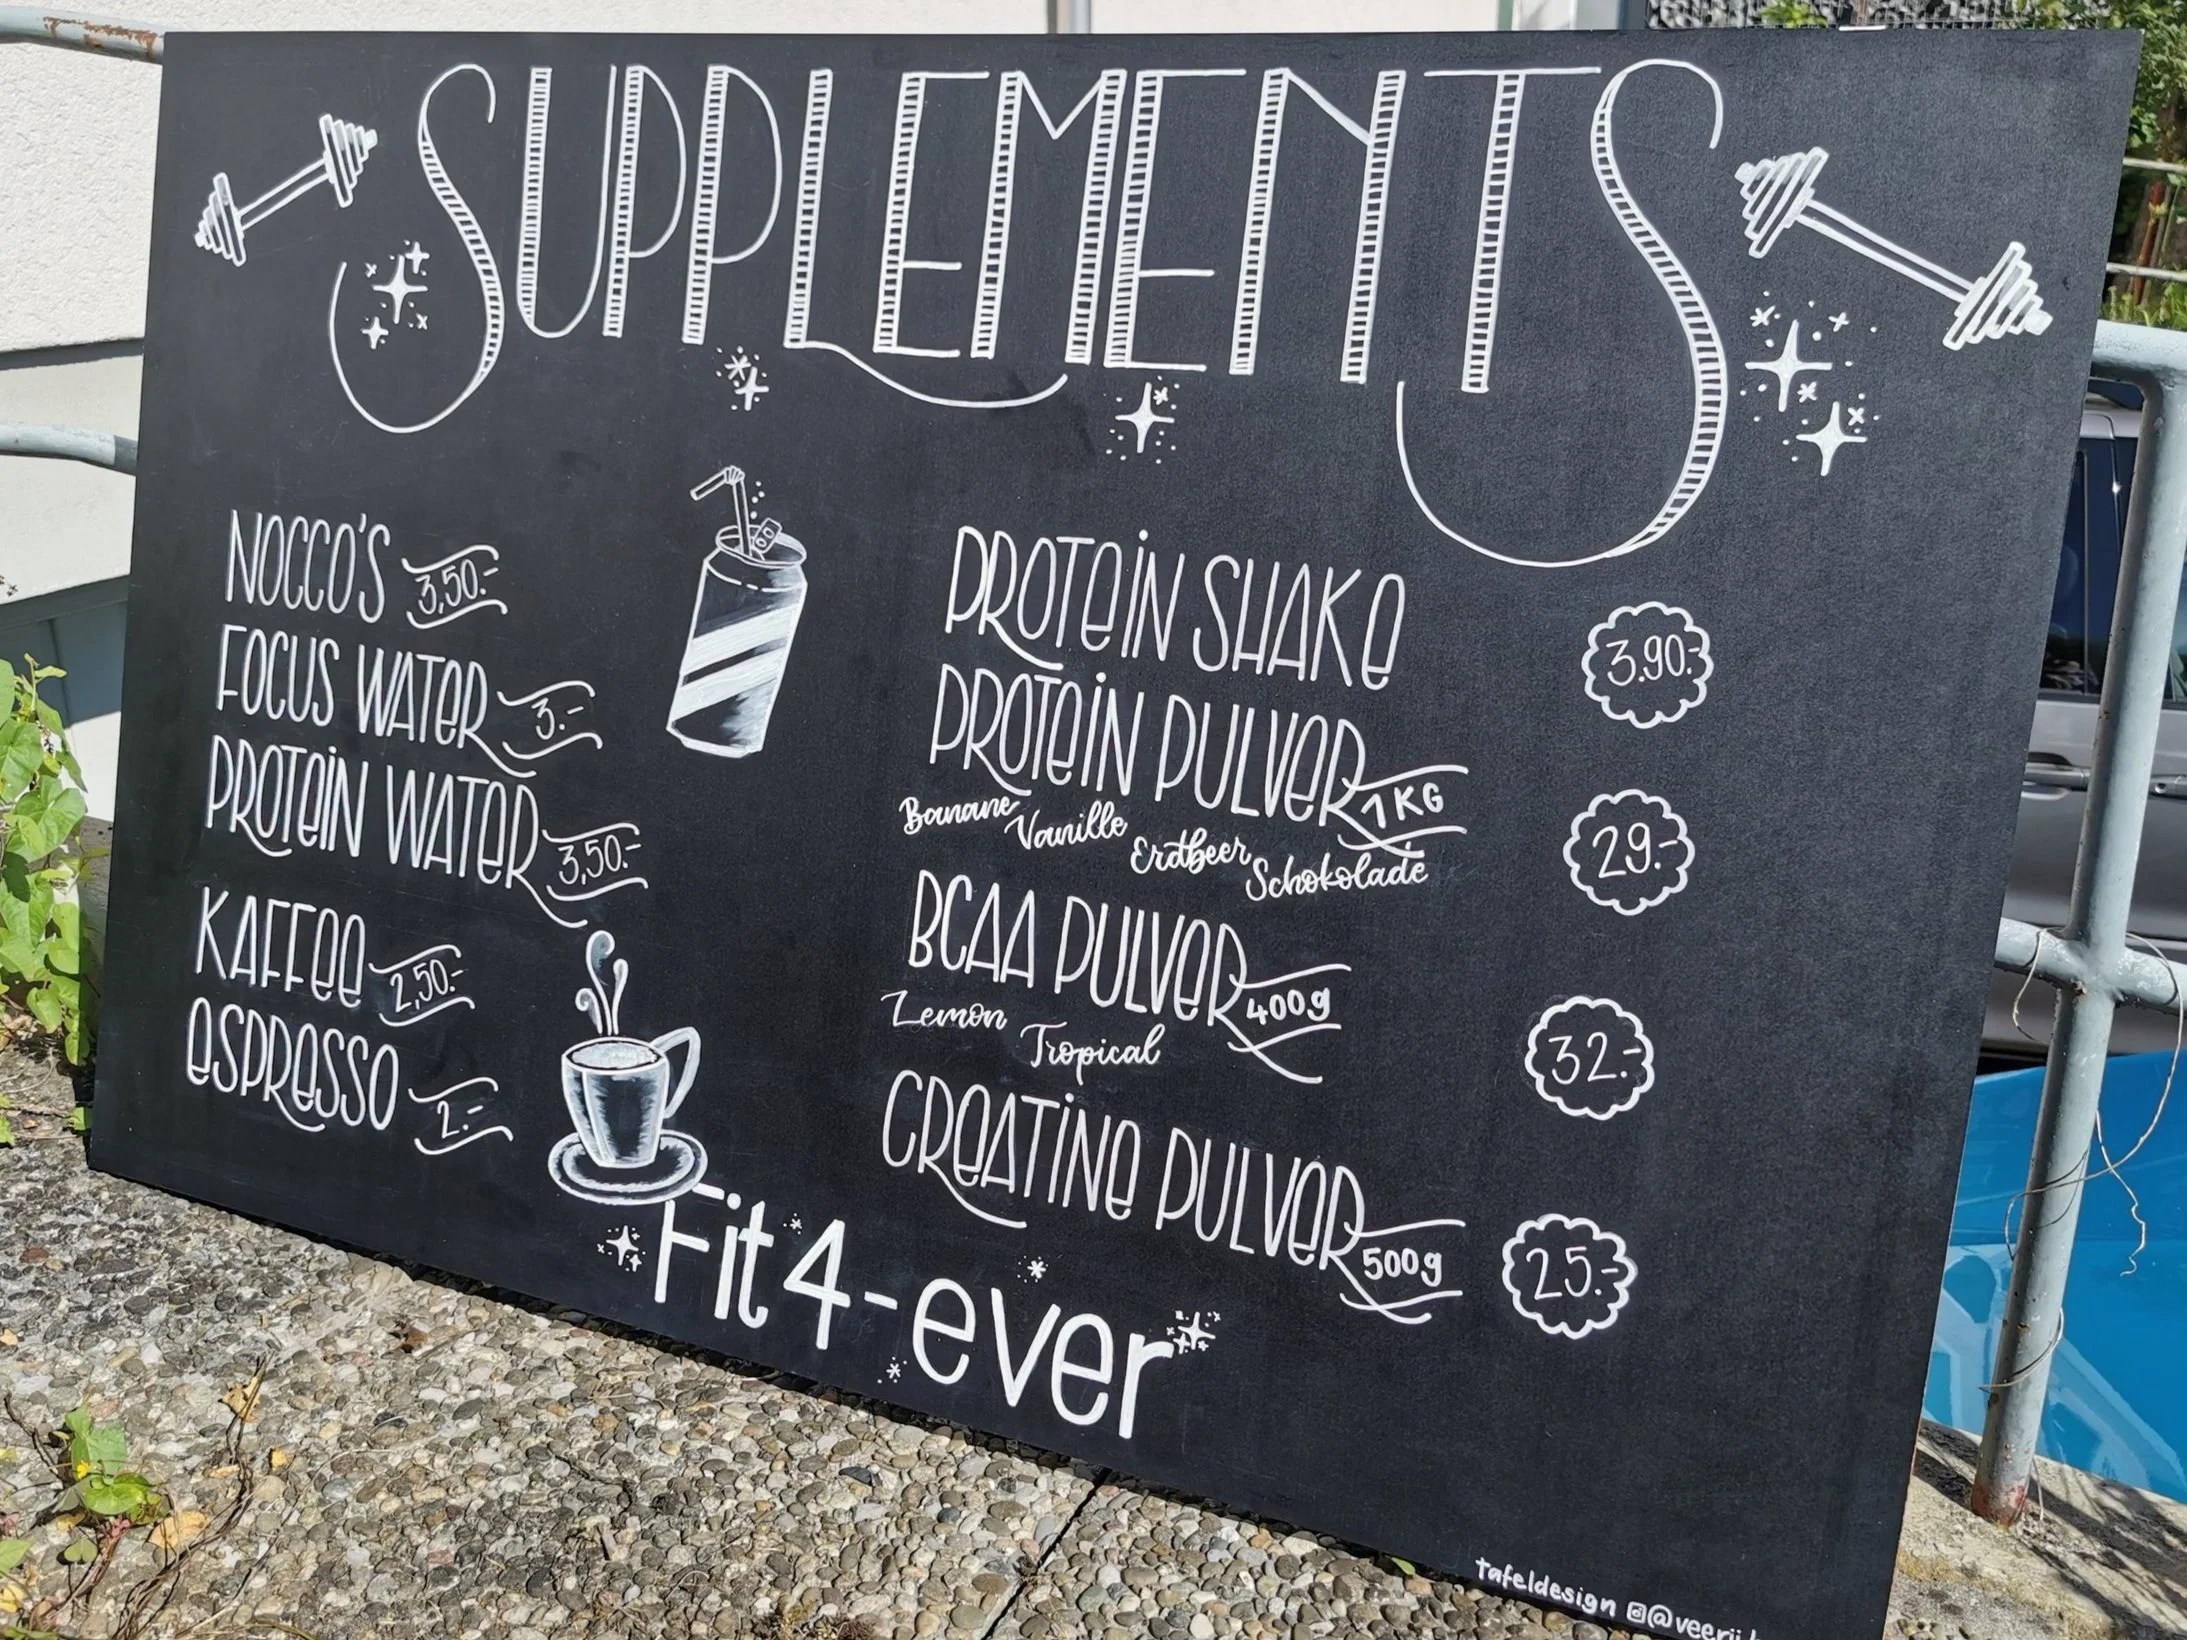 SUPPLEMENTS
NOCCO'S 3,50.-
FOCUS WATER 3.-
PROTEIN WATER 3,50.-
KAFFEE 2,50.-
ESPRESSO 2.-
PROTEIN SHAKE 3.90.-
PROTEIN PULVER 1KG 29.-
Banane Vanille Erdbeer Schokolade
BCAA PULVER 400g 32.-
Lemon Tropical
CREATINE PULVER 500g 25.-
Fit4-ever
tafeldesign